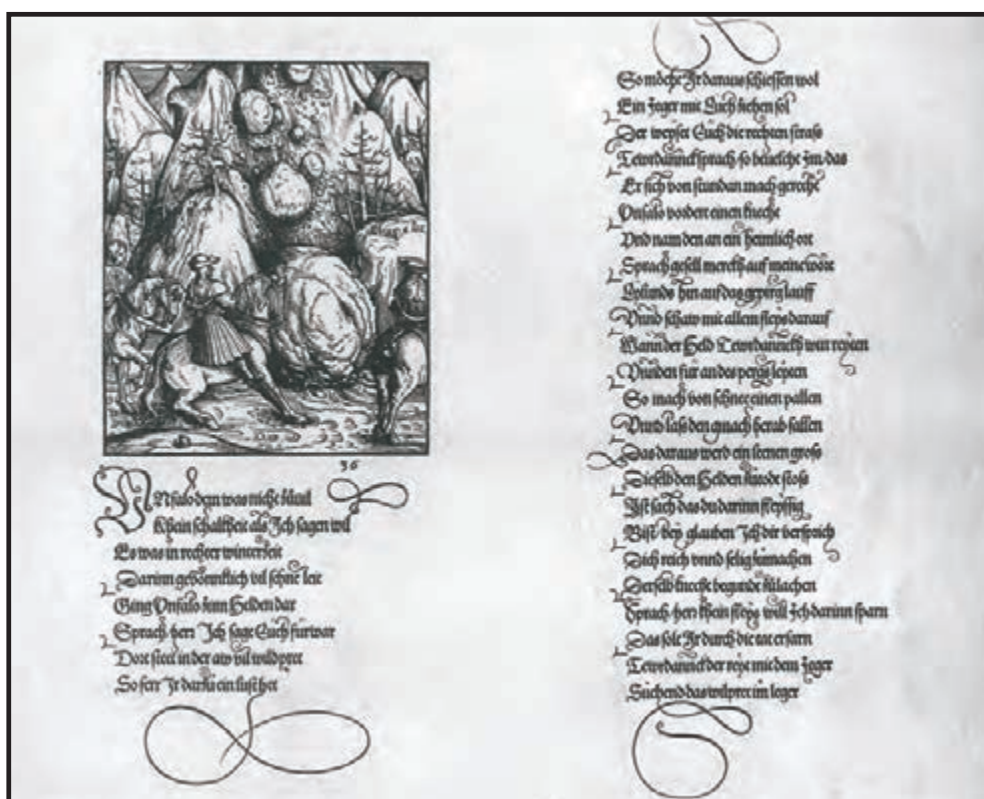 36
Unfalo dem was nicht zůuil
Khein schalkheit als Ich sagen wil
Es was in rechter winterzeit
Darinn gewönnklich vil schne leit
Ging Vnfalo zum Helden dar
Sprach herr Ich sage Euch fürwar
Dort steet in der aw vil wildpret
So ferr Ir darzů ein lust het
So möcht Ir daraus schiessen wol
Ein Jeger mit Euch ziehen sol
Der weyset Euch die rechten strass
Tewrdannck sprach so beuelht Im das
Er sich von stundan mach gerecht
Vnfalo vordert einen knecht
Vnd nam den an ein heimlich ort
Sprach gesell merckh auf meine wort
hin auf das gepirg lauff
Vnnd schaw mit allem fleys darauf
Wann der Held Tewrdannckh wirt reyten
Vnnden für an des pergs leyten
So mach von schnee einen pallen
Vnnd lass den gmach herab fallen
Das daraus werd ein leenen gross
Dieselb den Helden zutode stoss
Ist sach das du darinn fleyssig
Bist bey glauben Ich dir versprich
Dich reich vnnd selig zumachen
Derselb knecht begunde zůlachen
Sprach herr khein fleys will Ich darinn sparn
Das solt Ir durch die tat erfarn
Tewrdannck der reyt mit dem Jeger
Sůchend das wilpret im leger